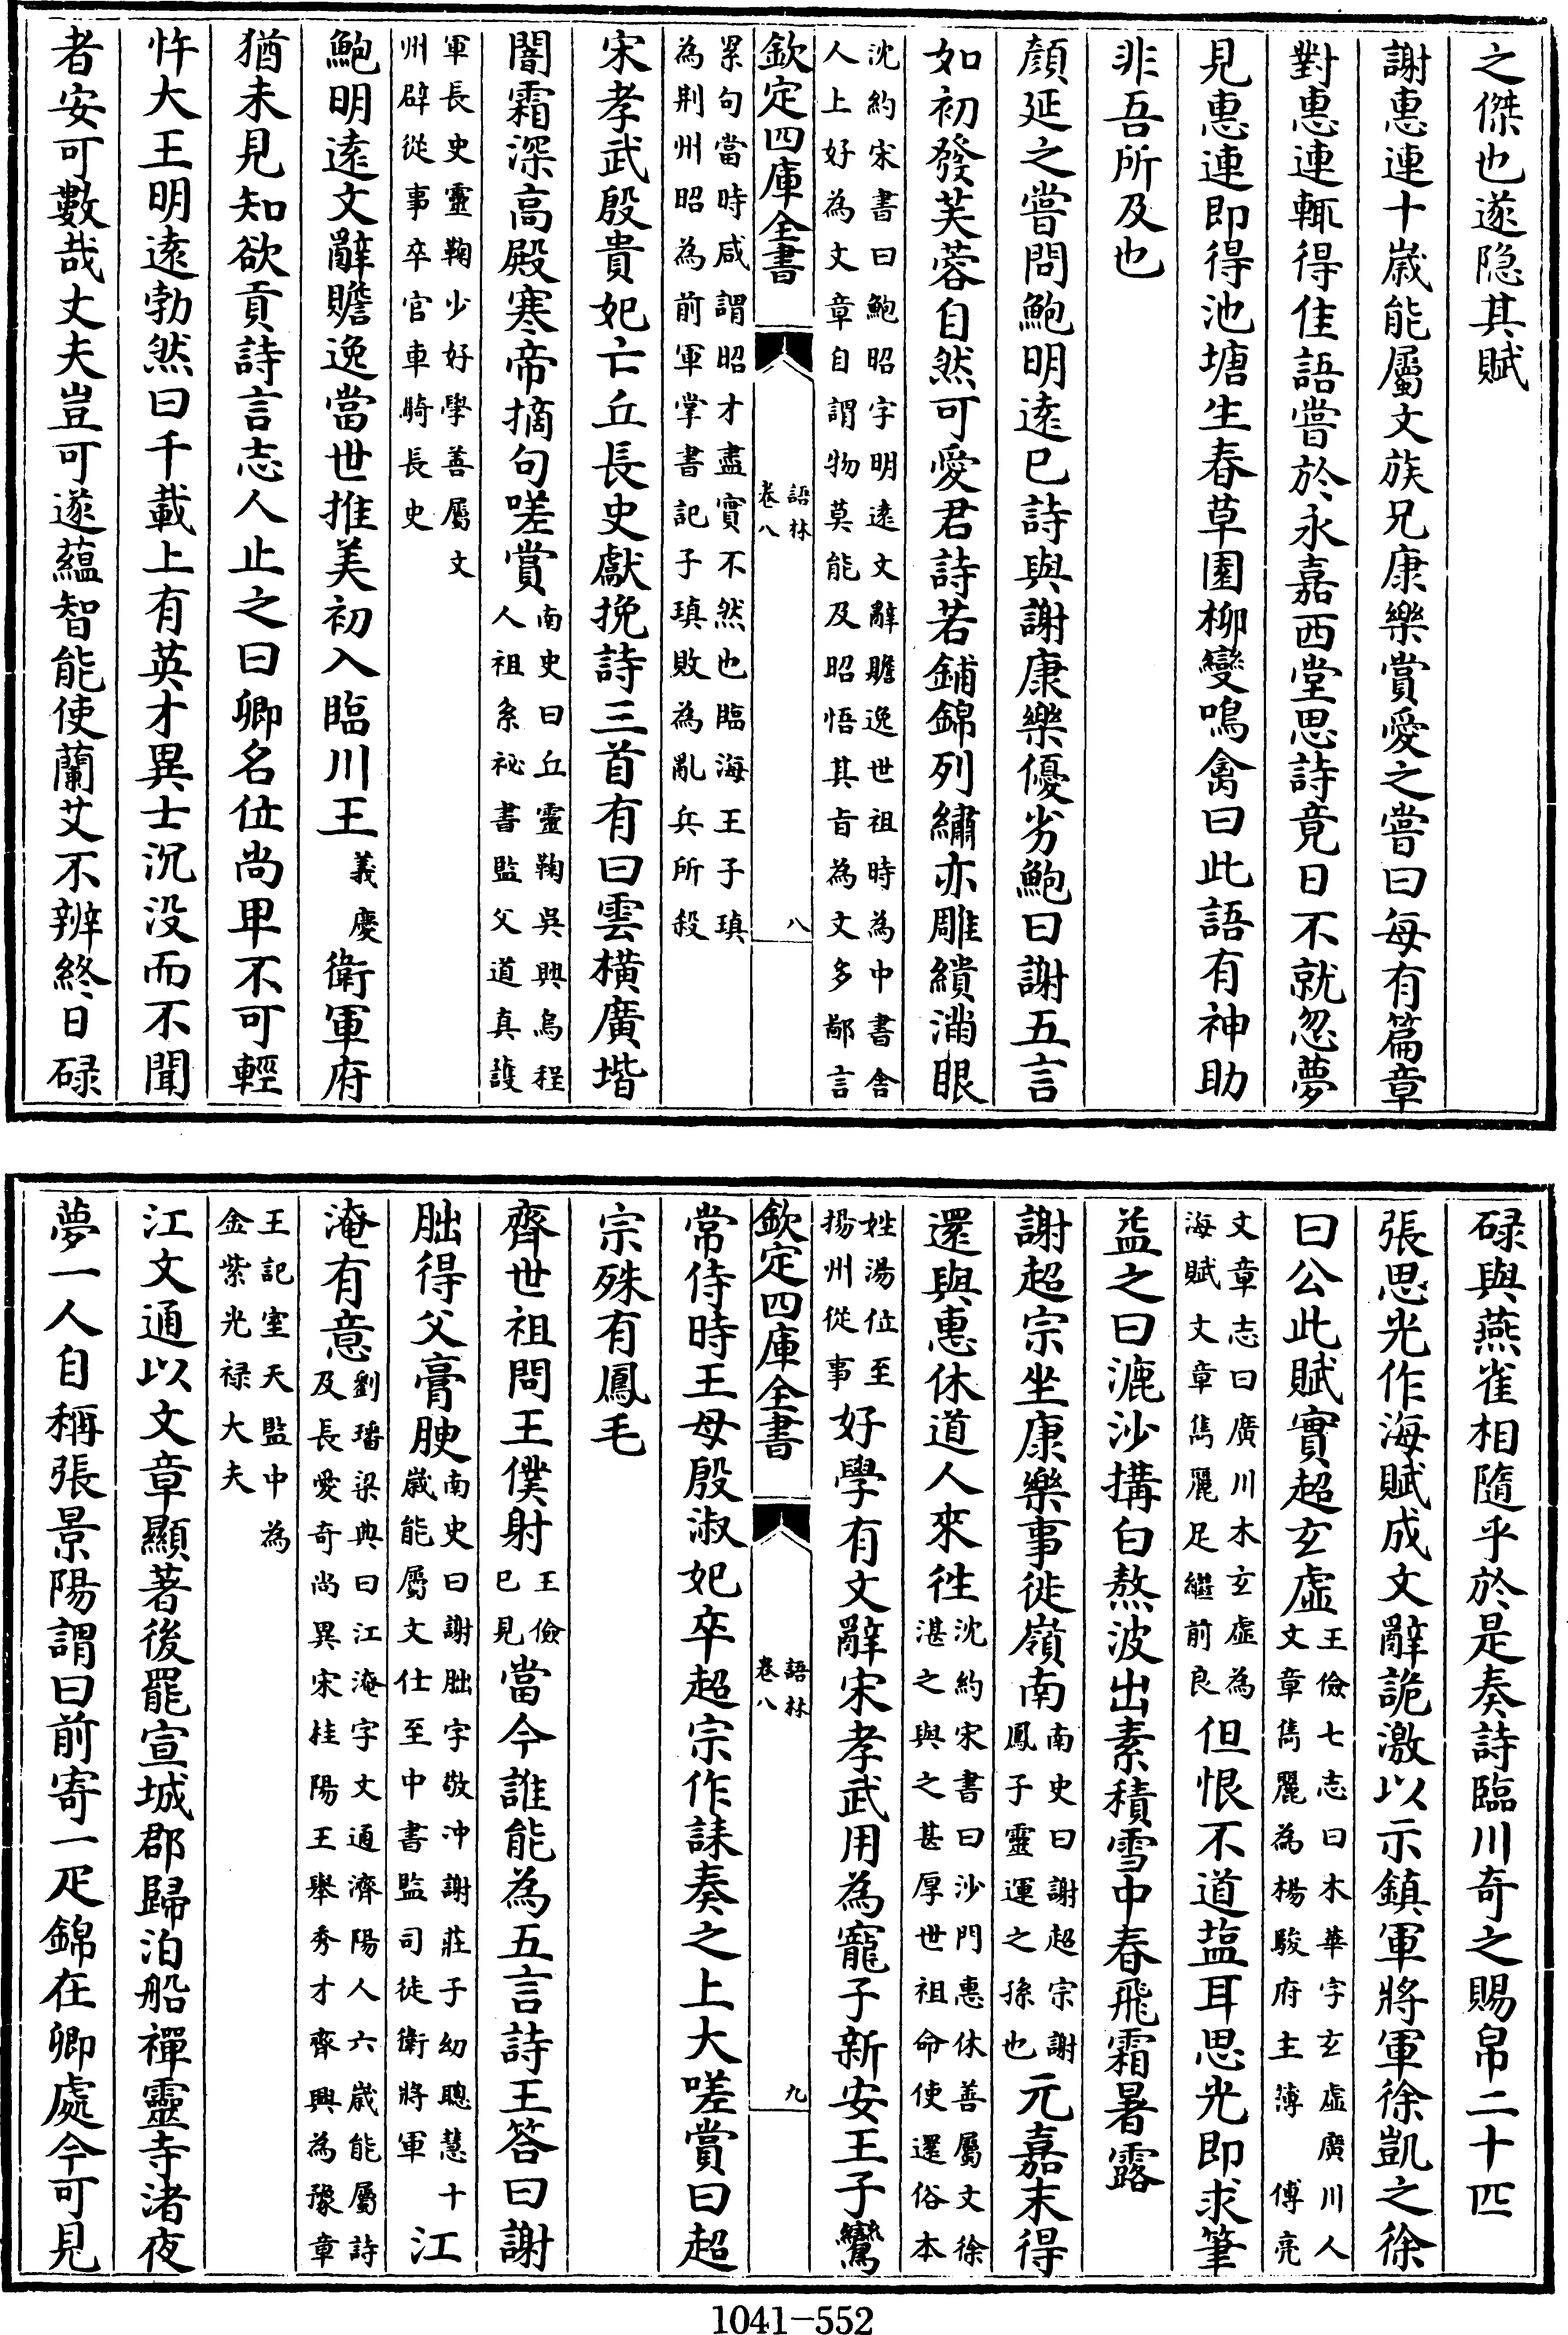 之傑也遂隐其賦
謝惠連十歳能屬文族兄康樂賞愛之嘗曰每有篇章
對惠連輒得佳語嘗於永嘉西堂思詩竟日不就忽夢
見惠連即得池塘生春草園柳變鳴禽曰此語有神助
非吾所及也
顔延之嘗問鮑明逺已詩與謝康樂優劣鮑曰謝五言
如初發芙蓉自然可愛君詩若鋪錦列繡亦雕繢滿眼
沈約宋書曰鮑昭字明逺文辭贍逸世祖時為中書舎
人上好為文章自謂物莫能及昭悟其旨為文多鄙言
欽定四庫全書
語林
卷八
八
累句當時咸謂昭才盡實不然也臨海王子瑱
為荆州昭為前軍掌書記子瑱敗為亂兵所殺
宋孝武殷貴妃亡丘長史獻挽詩三首有曰雲横廣堦
闇霜深髙殿寒帝摘句嗟賞
南史曰丘靈鞠吳興烏程
人祖系祕書監父道真護
軍長史靈鞠少好學善屬文
州辟從事卒官車騎長史
鮑明逺文辭贍逸當世推美初入臨川王
義慶
衛軍府
猶未見知欲貢詩言志人止之曰卿名位尚卑不可輕
忤大王明逺勃然曰千載上有英才異士沉没而不聞
者安可數哉丈夫豈可遂蘊智能使蘭艾不辨終日碌
碌與燕雀相隨乎於是奏詩臨川奇之賜帛二十匹
張思光作海賦成文辭詭激以示鎮軍將軍徐凱之徐
曰公此賦實超玄虚
王儉七志曰木華字玄虚廣川人
文章雋麗為楊駿府主簿傅亮
文章志曰廣川木玄虚為
海賦文章雋麗足繼前良
但恨不道塩耳思光即求筆
益之曰漉沙搆白熬波出素積雪中春飛霜暑露
謝超宗坐康樂事徙嶺南
南史曰謝超宗謝
鳳子靈運之孫也
元嘉末得
還與惠休道人來徃
沈約宋書曰沙門惠休善屬文徐
湛之與之甚厚世祖命使還俗本
姓湯位至
揚州從事
好學有文辭宋孝武用為寵子新安王子鸞
欽定四庫全書
語林
卷八
九
常侍時王母殷淑妃卒超宗作誄奏之上大嗟賞曰超
宗殊有鳳毛
齊世祖問王僕射
王儉
已見
當今誰能為五言詩王答曰謝
朏得父膏腴
南史曰謝朏字敬沖謝莊子幼聰慧十
歳能屬文仕至中書監司徒衛將軍
江
淹有意
劉璠梁典曰江淹字文通濟陽人六歳能屬詩
及長愛奇尚異宋桂陽王舉秀才齊興為豫章
王記室天監中為
金紫光禄大夫
江文通以文章顯著後罷宣城郡歸泊船禪靈寺渚夜
夢一人自稱張景陽謂曰前寄一疋錦在卿處今可見
1041-552